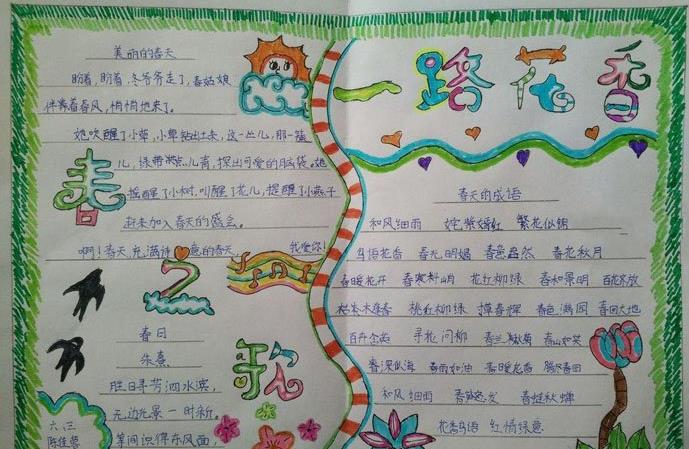 美丽的春天
盼着，盼着，冬爷爷走了，春姑娘
伴着春风，悄悄地来了。
她吹醒了小草，小草钻出土来，这一丛儿，那一
儿，绿
儿青，探出可爱的脑袋。她
摇醒了小树，叫醒了花儿，提醒了小燕子
赶来加入春天的盛会。
啊！春天，充满诗意的春天，我爱你！
春之歌
春日
朱熹
胜日寻芳泗水滨，
无边光景一时新。
等闲识得东风面，
六、三
陈佳
一路花香
春天的成语
和风细雨 姹紫嫣红 繁花似锦
鸟语花香 春光明媚 春色盎然 春花秋月
春暖花开 春寒料峭 花红柳绿 春和景明 百花齐放
桃红柳绿 春色满园 春回大地
寻花问柳 春山如笑
春深似海 春雨如油 春暖花香
和风细雨 春蛙秋蝉
花香鸟语 红情绿意